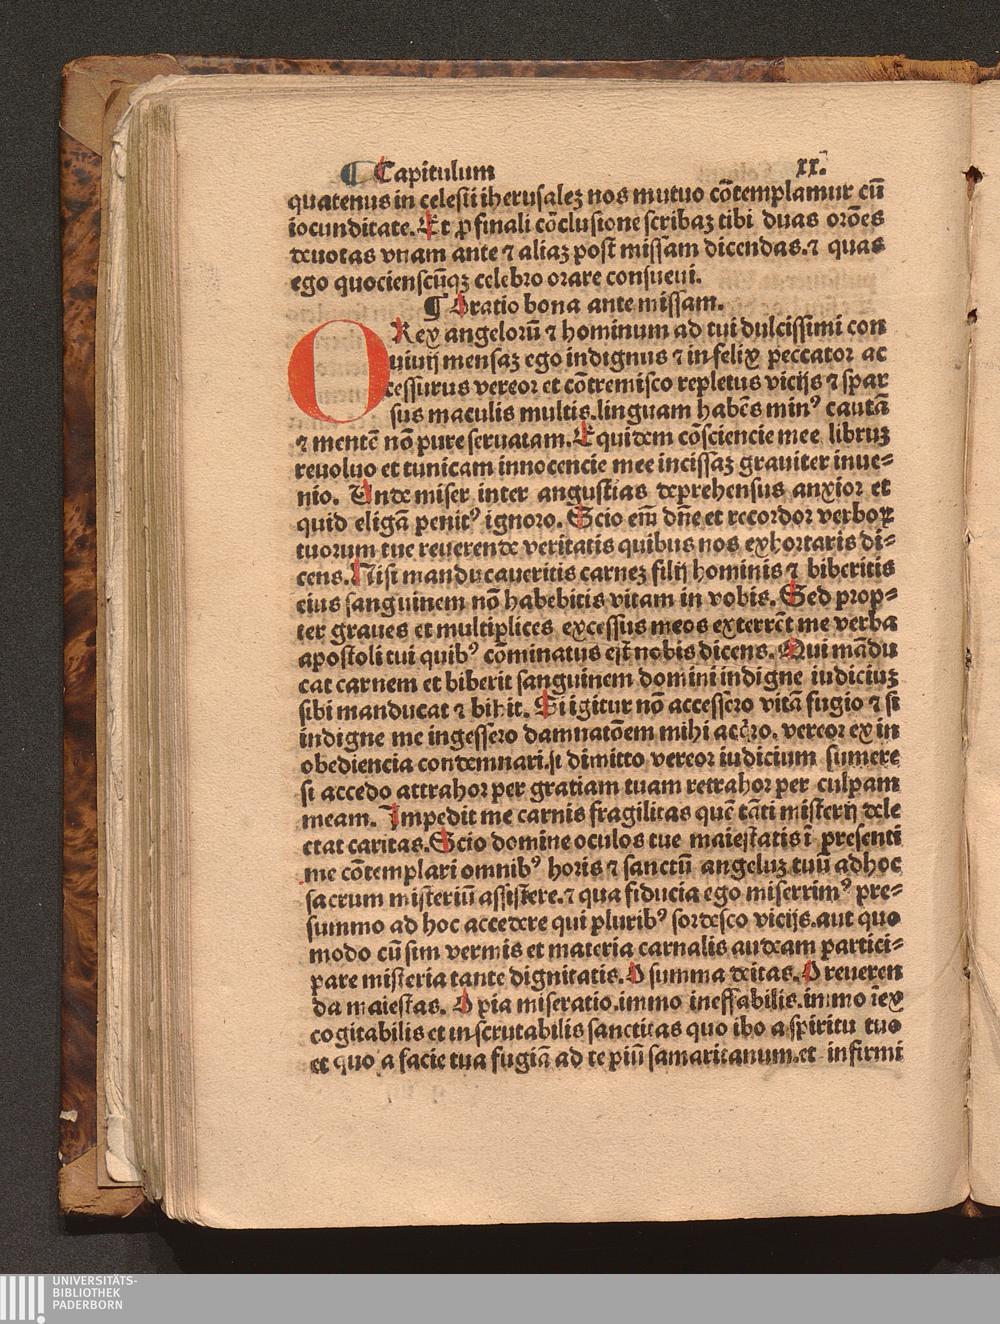 ¶ Capitulum xx.
quatenus in celesti iherusaleʒ nos mutuo cōtemplamur cū
iocunditate. Et ꝓ finali cōclusione scribaʒ tibi duas orōes
deuotas vnam ante ⁊ aliaʒ post missam dicendas. ⁊ quas
ego quociescūqʒ celebro orare consueui.
¶ Oratio bona ante missam.
O Rex angelorū ⁊ hominum ad tui dulcissimi con
uiuij mensaʒ ego indignus ⁊ infelix peccator ac
cessurus vereor et cōtremisco repletus vicijs ⁊ spar
sus maculis multis. linguam habēs minꝰ cautā
⁊ mentē nō pure seruatam. Equidem cōsciencie mee libruʒ
reuoluo et tunicam innocencie mee incissaʒ grauiter inue⸗
nio. Unde miser inter angustias deprehensus anxior et
quid eligā penitꝰ ignoro. Scio em̄ dn̄e et recordor verboꝝ
tuorum tue reuerende veritatis quibus nos exhortaris di⸗
cens. Nisi manducaueritis carneʒ filij hominis ⁊ biberitis
eius sanguinem nō habebitis vitam in vobis. Sed prop⸗
ter graues et multiplices excessus meos exterrēt me verba
apostoli tui quibꝰ cōminatus est nobis dicens. Qui mādu
cat carnem et biberit sanguinem domini indigne iudiciuʒ
sibi manducat ⁊ bibit. Si igitur nō accessero vitā fugio ⁊ si
indigne me ingessero damnatōem mihi acq̄ro. vereor ex in
obediencia condemnari. si dimitto vereor iudicium sumere
si accedo attrahor per gratiam tuam retrahor per culpam
meam. Impedit me carnis fragilitas quē tāti misterij dele
ctat caritas. Scio domine oculos tue maiestatis ī presenti
me cōtemplari omnibꝰ horis ⁊ sanctū angeluʒ tuū ad hoc
sacrum misteriū assistere. ⁊ qua fiducia ego miserrimꝰ pre⸗
summo ad hoc accedere qui pluribꝰ sordesco vicijs. aut quo
modo cū sim vermis et materia carnalis audeam partici⸗
pare misteria tante dignitatis. O summa deitas. O reueren
da maiestas. O pia miseratio. immo ineffabilis. immo īex
cogitabilis et inscrutabilis sanctitas quo ibo a spiritu tuo
et quo a facie tua fugiā ad te piū samaritanum. et infirmi
UNIVERSITÄTS-
BIBLIOTHEK
PADERBORN